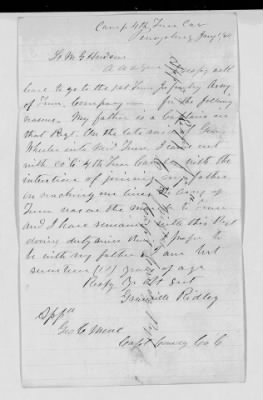 Camp 4th Tenn Cav
To M G Hudson
A A A Genl
leave to go to the 1st Tenn Infy Army
of Tenn, Company for the following
reasons. My father is a Captain in
that Regt. On the late raid of Genl
Wheeler into Mid Tenn, I came out
with Co C 4th Tenn Cavalry with the
intention of joining my father
on reaching our lines. The army of
Tenn was on the to Tenn
and I have remained with this Regt
doing duty since then. I prefer to
be with my father. I am but
seventeen (17) years of age
Respy Yr Obt Svt
Granville Ridley
App
Geo C Moore
Capt Comdg Co C